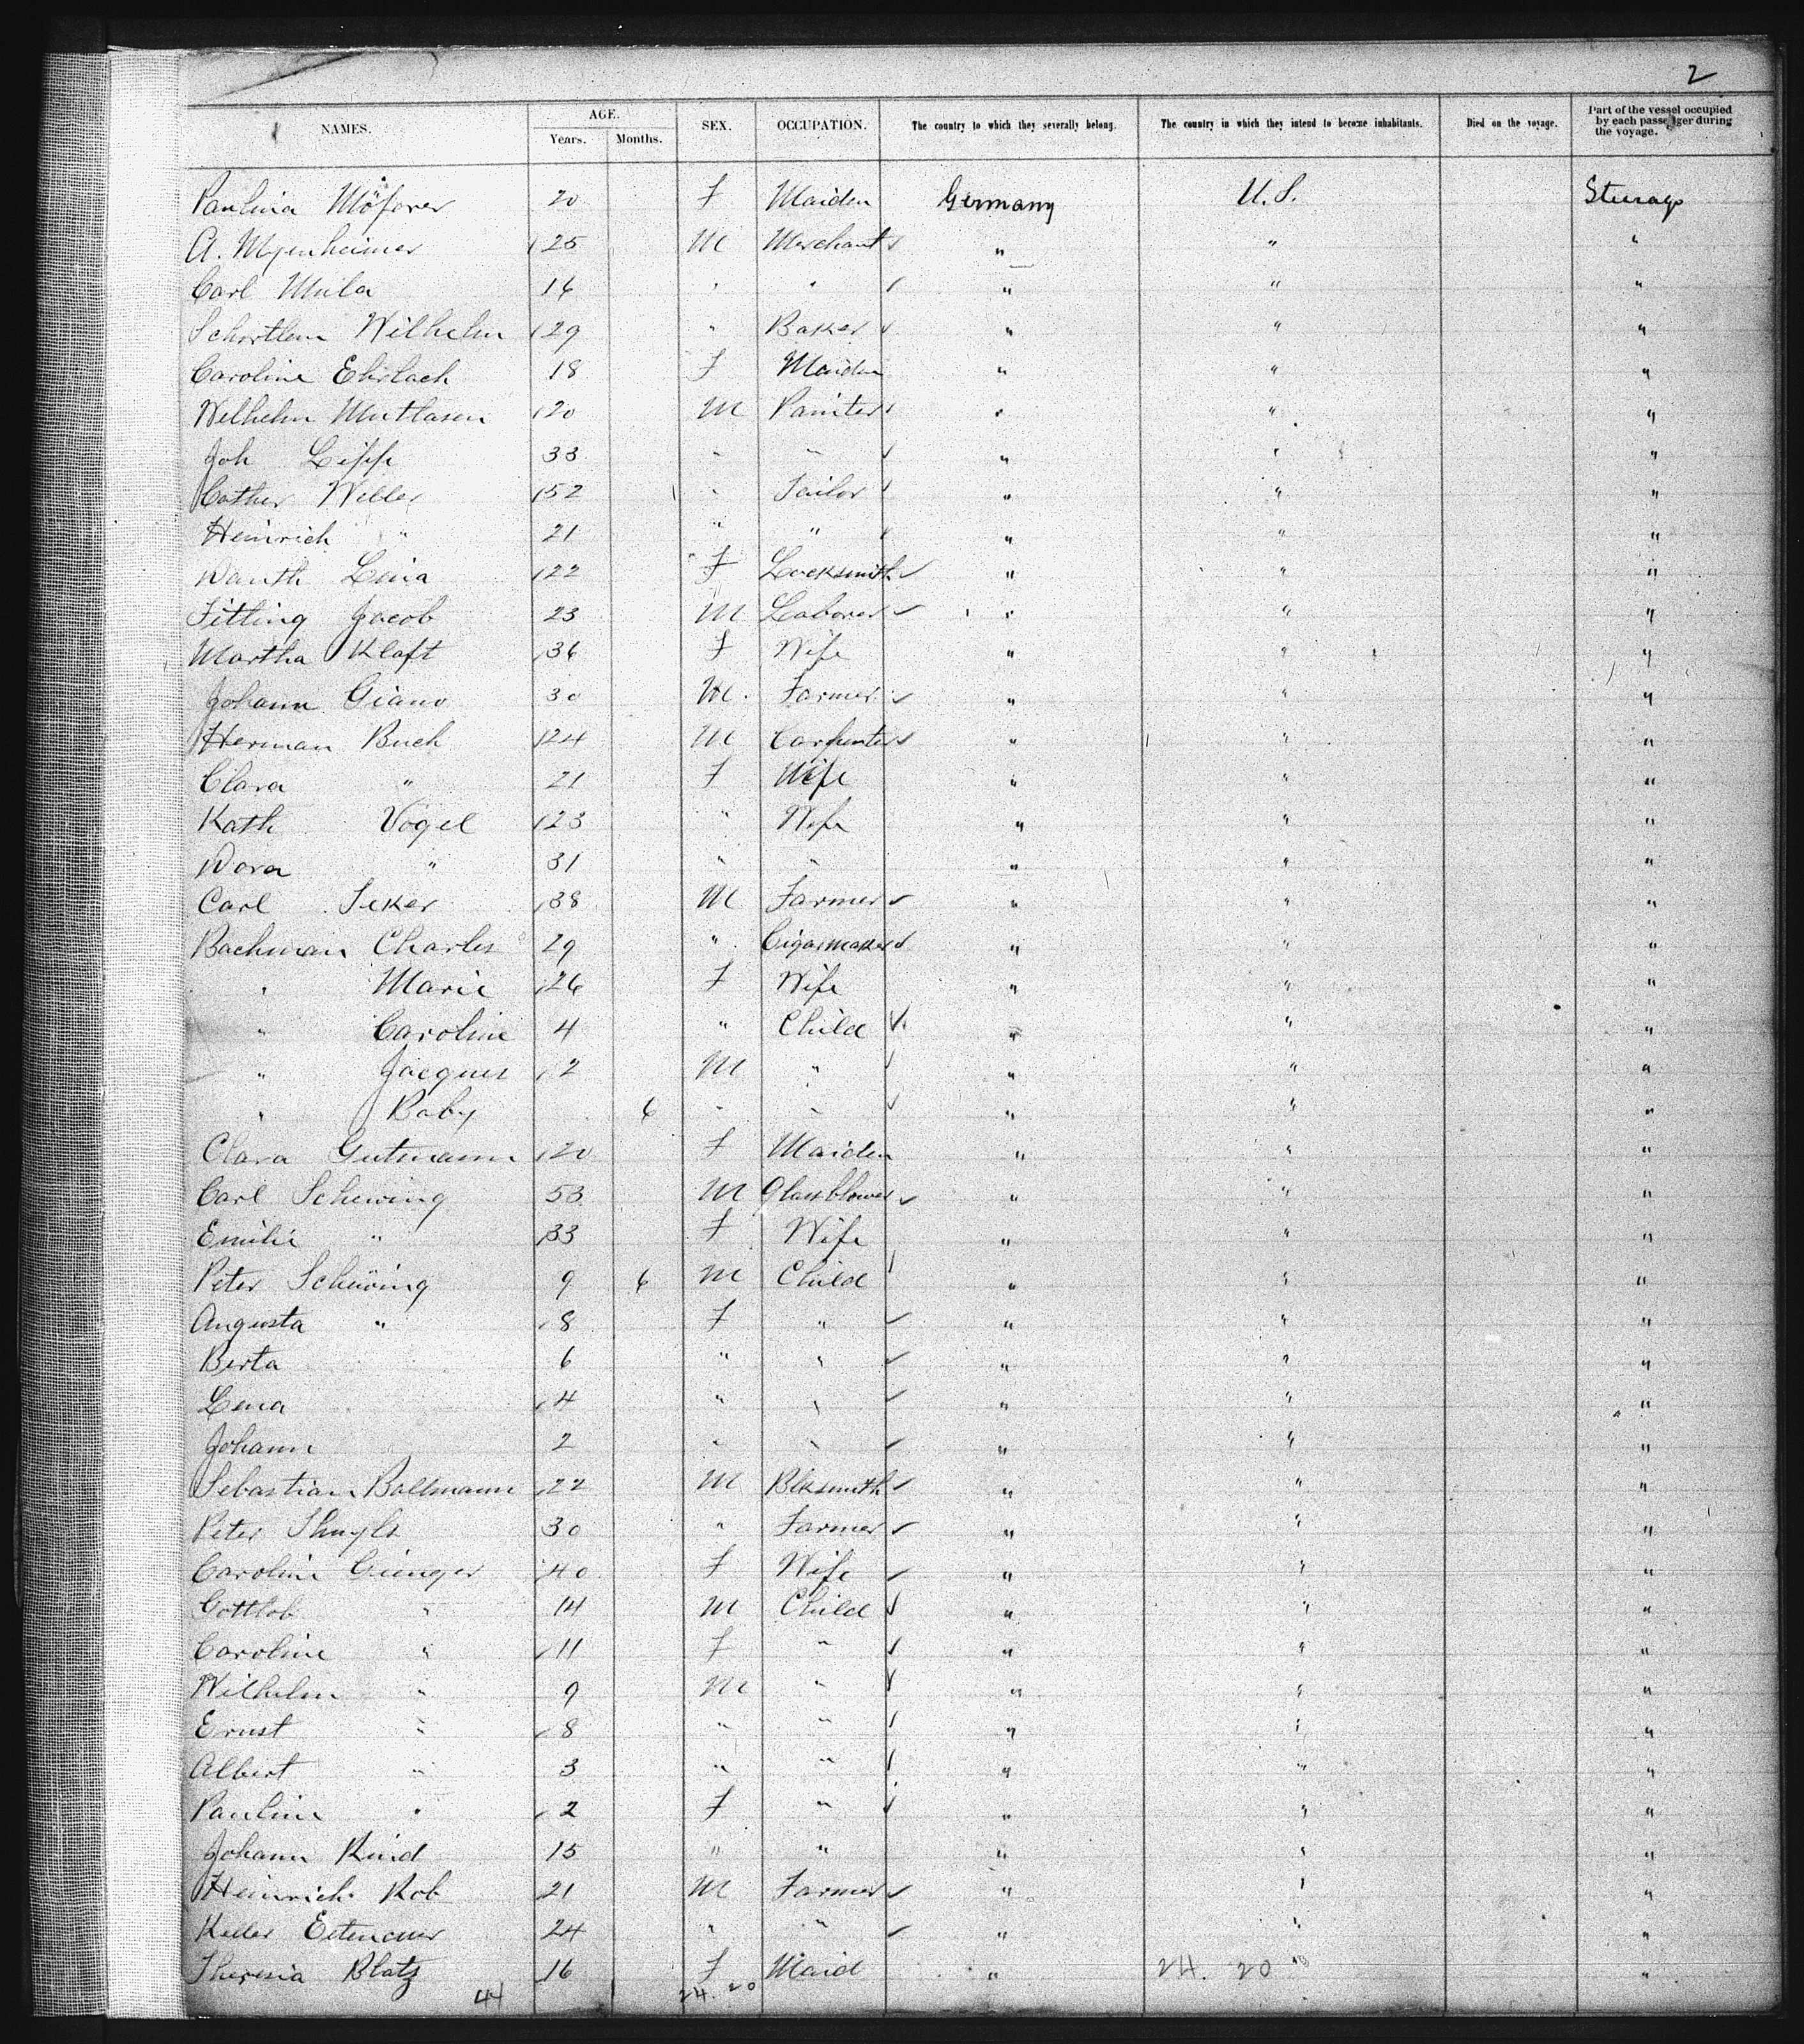 2
NAMES. AGE. Years. Months. SEX. OCCUPATION. The country to which they severally belong. The country in which they intend to become inhabitants. Died on the voyage. Part of the vessel occupied by each passenger during the voyage.
Paulina 20 F Maiden Germany U.S. Sturage
A. Myenheimer 25 M Merchant " " "
Carl Mula 16 " " " " "
Wilhelm 29 " Baker " " "
Caroline Ehrlach 18 F Maiden " " "
Wilhelm 20 M Painter " " "
Joh Lipp 33 " " " " "
Cather Weller 52 " Tailor " " "
Heinrich " 21 " " " " "
Wanth Lina 22 F Locksmith " " "
Fitling Jacob 23 M Laborer " " "
Martha Klaft 36 F Wife " " "
Johann Giano 30 M. Farmer " " "
Herman Buch 24 M Carpenter " " "
Clara " 21 F Wife " " "
Kath Vogel 23 " Wife " " "
Dora " 31 " " " " "
Carl Seker 38 M Farmer " " "
Bachman Charles 29 " Cigarmaker " " "
" Marie 26 F Wife " " "
" Caroline 4 " Child " " "
" Jacques 2 M " " " "
" Baby 6 " " " " "
Clara Gutmann 20 F Maiden " " "
Carl Schewing 53 M Glassblower " " "
Emilie " 33 F Wife " " "
Peter Schewing 9 6 M Child " " "
Augusta " 8 F " " " "
Berta 6 " " " " "
Lena 4 " " " " "
Johann 2 " " " " "
Sebastian Ballmann 22 M Blksmith " " "
Peter 30 " Farmer " " "
Caroline Gienger 40 F Wife " " "
Gottlob " 14 M Child " " "
Caroline " 11 F " " " "
Wilhelm " 9 M " " " "
Ernst " 8 " " " " "
Albert " 3 " " " " "
Pauline " 2 F " " " "
Johann Kind 15 " " " " "
Heinrich Rob 21 M Farmer " " "
Keller 24 " " " " "
Theresia Blatz 16 F Maid " 24. 20 " "
44 24. 20